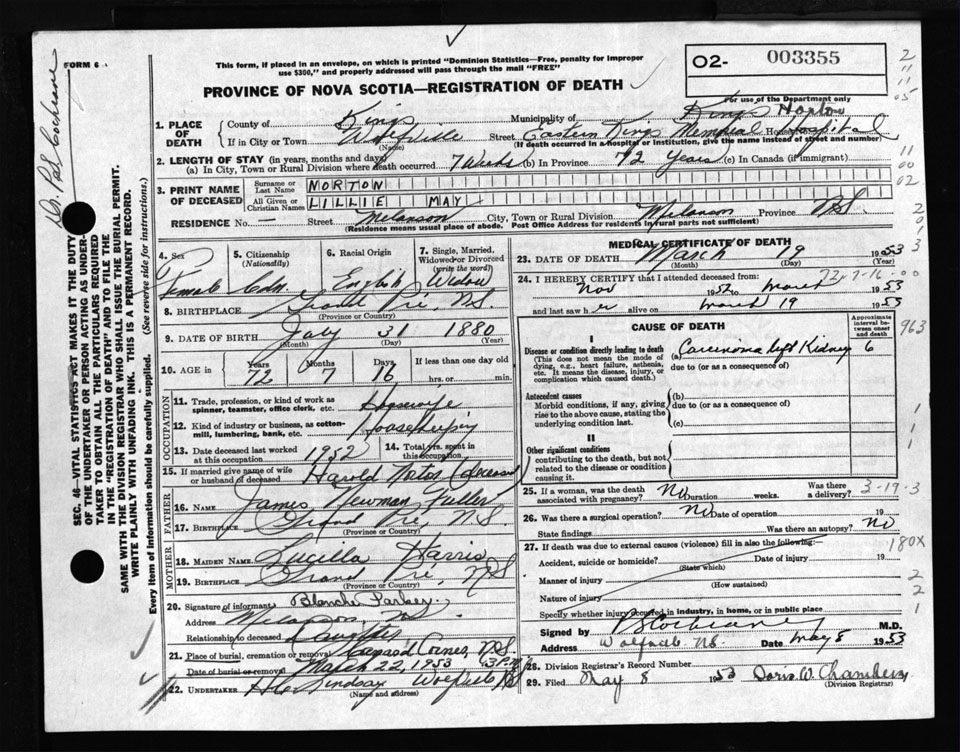 FORM 6
This form, if placed in an envelope, on which is printed "Dominion Statistics—Free, penalty for improper
use $300," and properly addressed will pass through the mail "FREE"
PROVINCE OF NOVA SCOTIA—REGISTRATION OF DEATH
02- 003355
For use of the Department only
1. PLACE OF DEATH
County of Kings Municipality of Kings Horton
If in City or Town Wolfville Street Eastern Kings Memorial Hospital
(Name) (If death occurred in a hospital or institution, give its name instead of street and number)
2. LENGTH OF STAY (in years, months and days)
(a) In City, Town or Rural Division where death occurred 7 Weeks (b) In Province 72 Years (c) In Canada (if immigrant)
3. PRINT NAME OF DECEASED
Surname or Last Name MORTON
All Given or Christian Names LILLIE MAY
RESIDENCE No. — Street Melanson City, Town or Rural Division Province N.S.
(Residence means usual place of abode. Post Office Address for residents in rural parts not sufficient)
4. Sex Female
5. Citizenship (Nationality) Cdn.
6. Racial Origin English
7. Single, Married, Widowed or Divorced (write the word) Widow
8. BIRTHPLACE Grand Pré, N.S.
(Province or Country)
9. DATE OF BIRTH July 31 1880
(Month) (Day) (Year)
10. AGE in Years 72 Months 7 Days 16 If less than one day old
hrs. or min.
OCCUPATION
11. Trade, profession, or kind of work as spinner, teamster, office clerk, etc. Housewife
12. Kind of industry or business, as cotton-mill, lumbering, bank, etc. Housekeeping
13. Date deceased last worked at this occupation 1952 14. Total yrs. spent in this occupation
15. If married give name of wife or husband of deceased Harold Morton (deceased)
FATHER
16. NAME James Newman Fuller
17. BIRTHPLACE Grand Pré, N.S.
(Province or Country)
MOTHER
18. MAIDEN NAME Lucilla Harris
19. BIRTHPLACE Grand Pré, N.S.
(Province or Country)
20. Signature of informant Blanche
Address Melanson
Relationship to deceased Daughter
21. Place of burial, cremation or removal N.S.
Date of burial or removal March 22, 1953 3 P.M.
22. UNDERTAKER Lindsay Wolfville N.S.
(Name and address)
MEDICAL CERTIFICATE OF DEATH
23. DATE OF DEATH March 19 1953
(Month) (Day) (Year)
72-7-16-00
24. I HEREBY CERTIFY that I attended deceased from:
Nov 1952 to March 1953
and last saw her alive on March 19 1953
CAUSE OF DEATH
Approximate interval between onset and death
I
Disease or condition directly leading to death (a) Carcinoma left Kidney 6
(This does not mean the mode of dying, e.g., heart failure, asthenia, etc. It means the disease, injury, or complication which caused death.)
due to (or as a consequence of)
Antecedent causes
Morbid conditions, if any, giving rise to the above cause, stating the underlying condition last.
(b)
due to (or as a consequence of)
(c)
II
Other significant conditions
contributing to the death, but not related to the disease or condition causing it.
25. If a woman, was the death associated with pregnancy? No Duration weeks. Was there a delivery? 3-19-3
26. Was there a surgical operation? No Date of operation 19
State findings Was there an autopsy? No
27. If death was due to external causes (violence) fill in also the following:— 180X
Accident, suicide or homicide? Date of injury 19
(State which)
Manner of injury
(How sustained)
Nature of injury
Specify whether injury occurred in industry, in home, or in public place
Signed by Cochrane M.D.
Address Wolfville N.S. Date May 8 1953
28. Division Registrar's Record Number
29. Filed May 8 1953 Doris W. Chambers
(Division Registrar)
SEC. 46—VITAL STATISTICS ACT MAKES IT THE DUTY
OF THE UNDERTAKER OR PERSON ACTING AS UNDER-
TAKER TO OBTAIN ALL THE PARTICULARS REQUIRED
IN THE "REGISTRATION OF DEATH" AND TO FILE THE
SAME WITH THE DIVISION REGISTRAR WHO SHALL ISSUE THE BURIAL PERMIT.
WRITE PLAINLY WITH UNFADING INK. THIS IS A PERMANENT RECORD.
Every item of information should be carefully supplied. (See reverse side for instructions.)